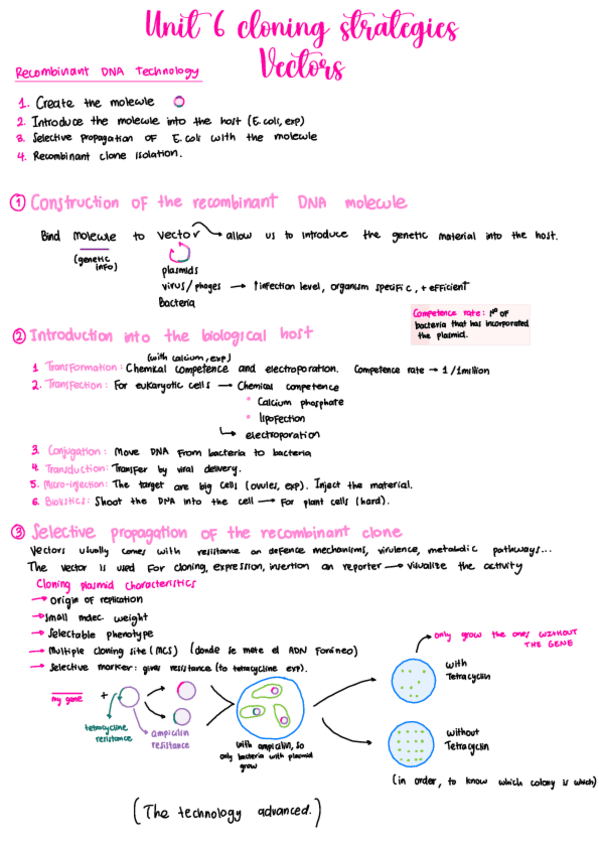 Unit 6 cloning strategies
Vectors
Recombinant DNA Technology
1. Create the molecule
2. Introduce the molecule into the host (E. coli, exp)
3. Selective propagation of E. coli with the molecule
4. Recombinant clone isolation.
① Construction of the recombinant DNA molecule
Bind molecule to vector allow us to introduce the genetic material into the host.
(genetic info)
plasmids
virus/phages → ↑infection level, organism specific, + efficient
Bacteria
Competence rate: Nº of
bacteria that has incorporated
the plasmid.
② Introduction into the biological host
(with calcium, exp)
1. Transformation: Chemical competence and electroporation. Competence rate → 1/1million
2. Transfection: For eukaryotic cells → Chemical competence
* Calcium phosphate
* lipofection
↳ electroporation
3. Conjugation: Move DNA from bacteria to bacteria
4. Transduction: Transfer by viral delivery.
5. Micro-injection: The target are big cells (ovules, exp). Inject the material.
6. Biolistics: Shoot the DNA into the cell → For plant cells (hard).
③ Selective propagation of the recombinant clone
Vectors usually comes with resistance an defence mechanisms, virulence, metabolic pathways...
The vector is used for cloning, expression, insertion an reporter → visualize the activity
Cloning plasmid characteristics
→ Origin of replication
→ Small molec. weight
→ Selectable phenotype
→ Multiple cloning site (MCS) (donde se mete el ADN Foráneo)
→ Selective marker: gives resistance (to tetracycline exp).
only grow the ones WITHOUT
THE GENE
with
Tetracyclin
my gene +
tetracycline
resistance
ampicilin
resistance
with ampicilin, so
only bacteria with plasmid
grow
without
Tetracyclin
(in order, to know which colony is which)
(The technology advanced.)